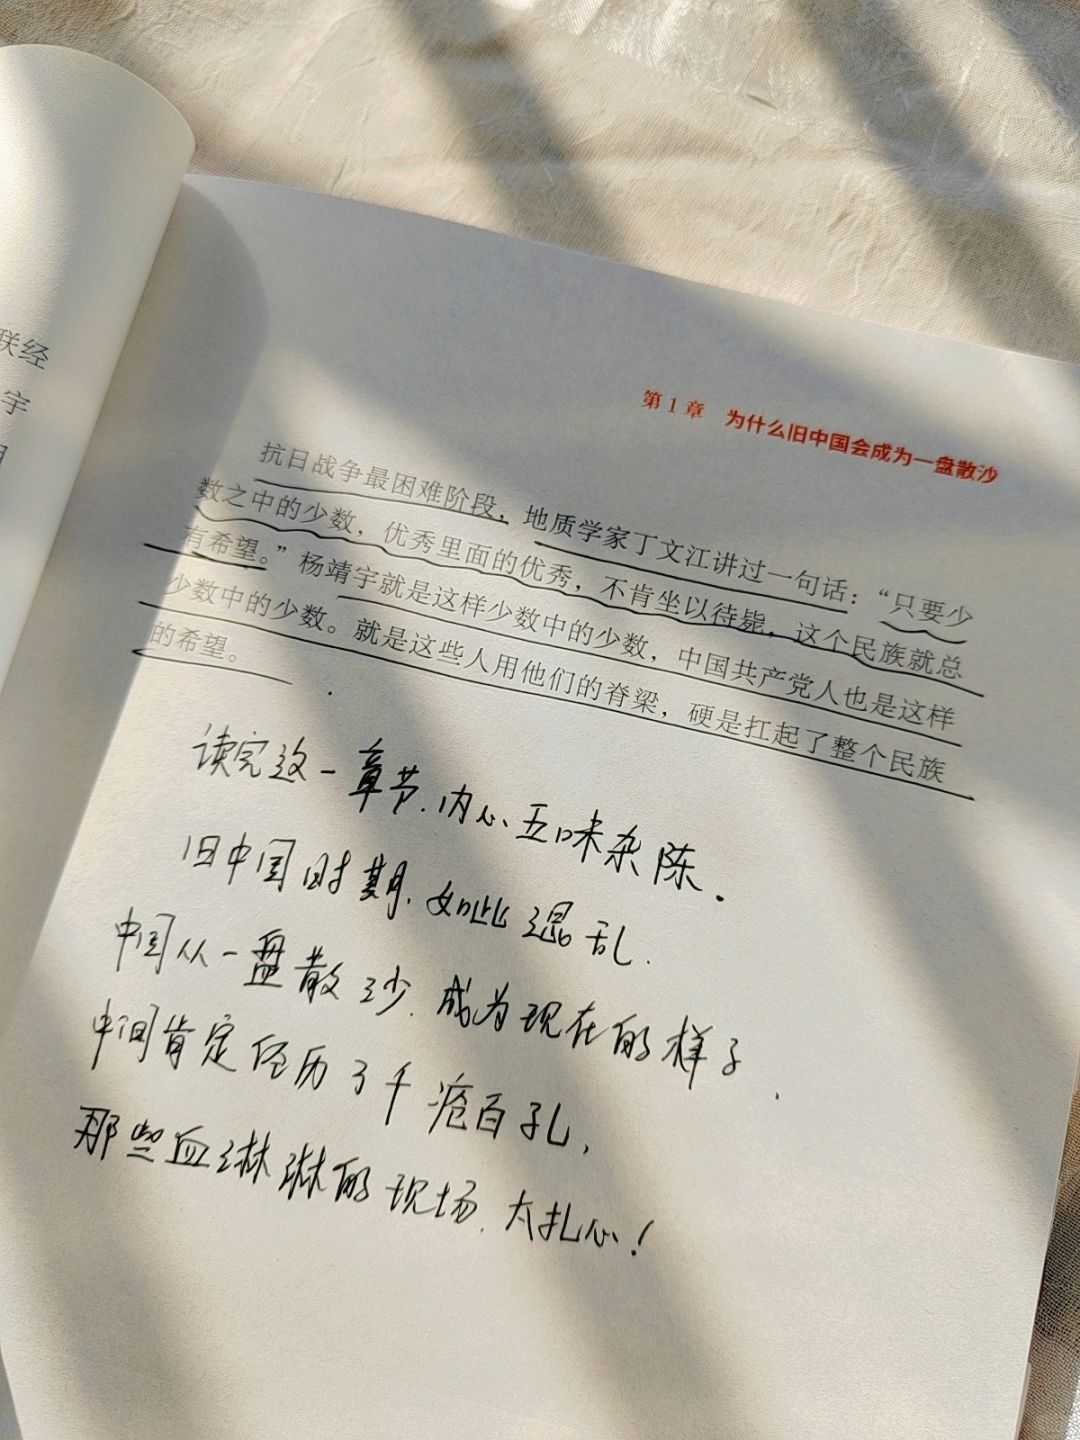 联经
宇
第1章 为什么旧中国会成为一盘散沙
抗日战争最困难阶段，地质学家丁文江讲过一句话：“只要少
数之中的少数，优秀里面的优秀，不肯坐以待毙，这个民族就总
有希望。”杨靖宇就是这样少数中的少数，中国共产党人也是这样
少数中的少数。就是这些人用他们的脊梁，硬是扛起了整个民族
的希望。
读完这一章节，内心五味杂陈．
旧中国时期，如此混乱．
中国从一盘散沙，成为现在的样子．
中间肯定经历了千疮百孔，
那些血淋淋的现场，太扎心！